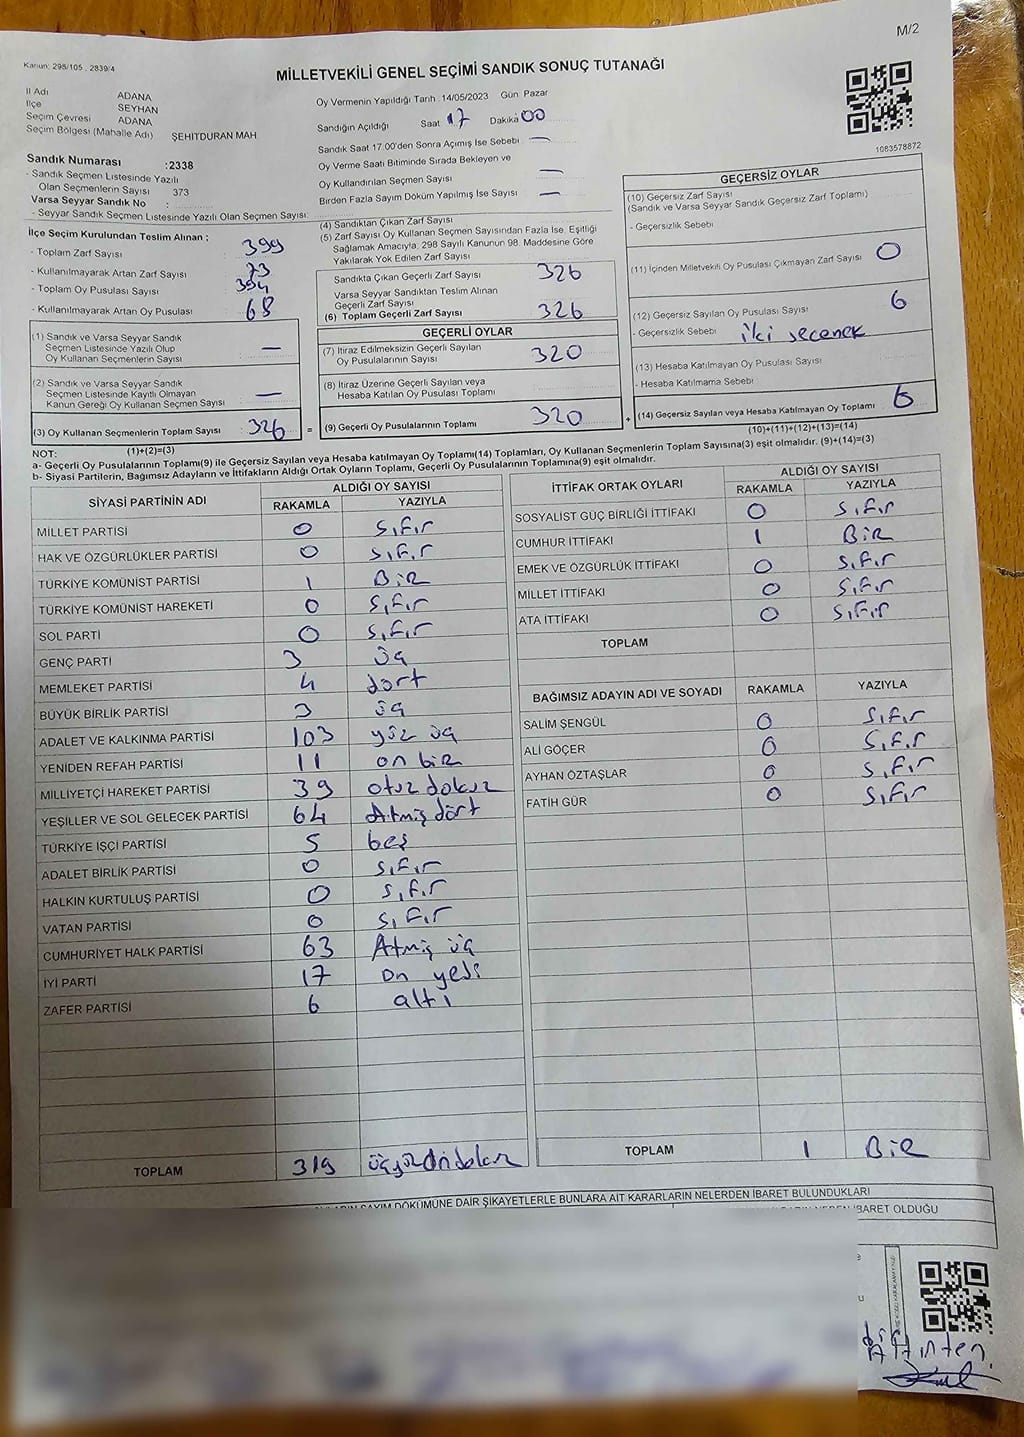 M/2
Kanun: 298/105 , 2839/4
MİLLETVEKİLİ GENEL SEÇİMİ SANDIK SONUÇ TUTANAĞI
İl Adı ADANA
İlçe SEYHAN
Seçim Çevresi ADANA
Seçim Bölgesi (Mahalle Adı) ŞEHİTDURAN MAH
Sandık Numarası :2338
- Sandık Seçmen Listesinde Yazılı
Olan Seçmenlerin Sayısı 373
Varsa Seyyar Sandık No :
- Seyyar Sandık Seçmen Listesinde Yazılı Olan Seçmen Sayısı:
Oy Vermenin Yapıldığı Tarih :14/05/2023 Gün: Pazar
Sandığın Açıldığı Saat 17 Dakika 00
Sandık Saat 17:00'den Sonra Açımış İse Sebebi —
Oy Verme Saati Bitiminde Sırada Bekleyen ve
Oy Kullandırılan Seçmen Sayısı —
Birden Fazla Sayım Döküm Yapılmış İse Sayısı —
1083578872
İlçe Seçim Kurulundan Teslim Alınan ;
- Toplam Zarf Sayısı 399
- Kullanılmayarak Artan Zarf Sayısı 73
- Toplam Oy Pusulası Sayısı 394
- Kullanılmayarak Artan Oy Pusulası 68
(1) Sandık ve Varsa Seyyar Sandık
Seçmen Listesinde Yazılı Olup
Oy Kullanan Seçmenlerin Sayısı —
(2) Sandık ve Varsa Seyyar Sandık
Seçmen Listesinde Kayıtlı Olmayan
Kanun Gereği Oy Kullanan Seçmen Sayısı —
(3) Oy Kullanan Seçmenlerin Toplam Sayısı 326 =
(1)+(2)=(3)
(4) Sandıktan Çıkan Zarf Sayısı
(5) Zarf Sayısı Oy Kullanan Seçmen Sayısından Fazla İse, Eşitliği
Sağlamak Amacıyla; 298 Sayılı Kanunun 98. Maddesine Göre
Yakılarak Yok Edilen Zarf Sayısı
Sandıkta Çıkan Geçerli Zarf Sayısı 326
Varsa Seyyar Sandıktan Teslim Alınan
Geçerli Zarf Sayısı
(6) Toplam Geçerli Zarf Sayısı 326
GEÇERLİ OYLAR
(7) İtiraz Edilmeksizin Geçerli Sayılan
Oy Pusulalarının Sayısı 320
(8) İtiraz Üzerine Geçerli Sayılan veya
Hesaba Katılan Oy Pusulası Toplamı
(9) Geçerli Oy Pusulalarının Toplamı 320 +
GEÇERSİZ OYLAR
(10) Geçersiz Zarf Sayısı
(Sandık ve Varsa Seyyar Sandık Geçersiz Zarf Toplamı)
- Geçersizlik Sebebi
(11) İçinden Milletvekili Oy Pusulası Çıkmayan Zarf Sayısı 0
(12) Geçersiz Sayılan Oy Pusulası Sayısı 6
- Geçersizlik Sebebi iki seçenek
(13) Hesaba Katılmayan Oy Pusulası Sayısı
- Hesaba Katılmama Sebebi
(14) Geçersiz Sayılan veya Hesaba Katılmayan Oy Toplamı 6
(10)+(11)+(12)+(13)=(14)
NOT:
a- Geçerli Oy Pusulalarının Toplamı(9) ile Geçersiz Sayılan veya Hesaba katılmayan Oy Toplamı(14) Toplamları, Oy Kullanan Seçmenlerin Toplam Sayısına(3) eşit olmalıdır. (9)+(14)=(3)
b- Siyasi Partilerin, Bağımsız Adayların ve İttifakların Aldığı Ortak Oyların Toplamı, Geçerli Oy Pusulalarının Toplamına(9) eşit olmalıdır.
SİYASİ PARTİNİN ADI ALDIĞI OY SAYISI
RAKAMLA YAZIYLA
MİLLET PARTİSİ 0 Sıfır
HAK VE ÖZGÜRLÜKLER PARTİSİ 0 Sıfır
TÜRKİYE KOMÜNİST PARTİSİ 1 Bir
TÜRKİYE KOMÜNİST HAREKETİ 0 Sıfır
SOL PARTİ 0 Sıfır
GENÇ PARTİ 3 üç
MEMLEKET PARTİSİ 4 dört
BÜYÜK BİRLİK PARTİSİ 3 üç
ADALET VE KALKINMA PARTİSİ 103 yüz üç
YENİDEN REFAH PARTİSİ 11 on bir
MİLLİYETÇİ HAREKET PARTİSİ 39 otuz dokuz
YEŞİLLER VE SOL GELECEK PARTİSİ 64 Atmış dört
TÜRKİYE İŞÇİ PARTİSİ 5 beş
ADALET BİRLİK PARTİSİ 0 Sıfır
HALKIN KURTULUŞ PARTİSİ 0 Sıfır
VATAN PARTİSİ 0 Sıfır
CUMHURİYET HALK PARTİSİ 63 Atmış üç
İYİ PARTİ 17 on yedi
ZAFER PARTİSİ 6 altı
TOPLAM 319 üçyüzondokuz
İTTİFAK ORTAK OYLARI ALDIĞI OY SAYISI
RAKAMLA YAZIYLA
SOSYALİST GÜÇ BİRLİĞİ İTTİFAKI 0 Sıfır
CUMHUR İTTİFAKI 1 Bir
EMEK VE ÖZGÜRLÜK İTTİFAKI 0 Sıfır
MİLLET İTTİFAKI 0 Sıfır
ATA İTTİFAKI 0 Sıfır
TOPLAM
BAĞIMSIZ ADAYIN ADI VE SOYADI RAKAMLA YAZIYLA
SALİM ŞENGÜL 0 Sıfır
ALİ GÖÇER 0 Sıfır
AYHAN ÖZTAŞLAR 0 Sıfır
FATİH GÜR 0 Sıfır
TOPLAM 1 Bir
SAYIM DÖKÜMÜNE DAİR ŞİKAYETLERLE BUNLARA AİT KARARLARIN NELERDEN İBARET BULUNDUKLARI
İBARET OLDUĞU